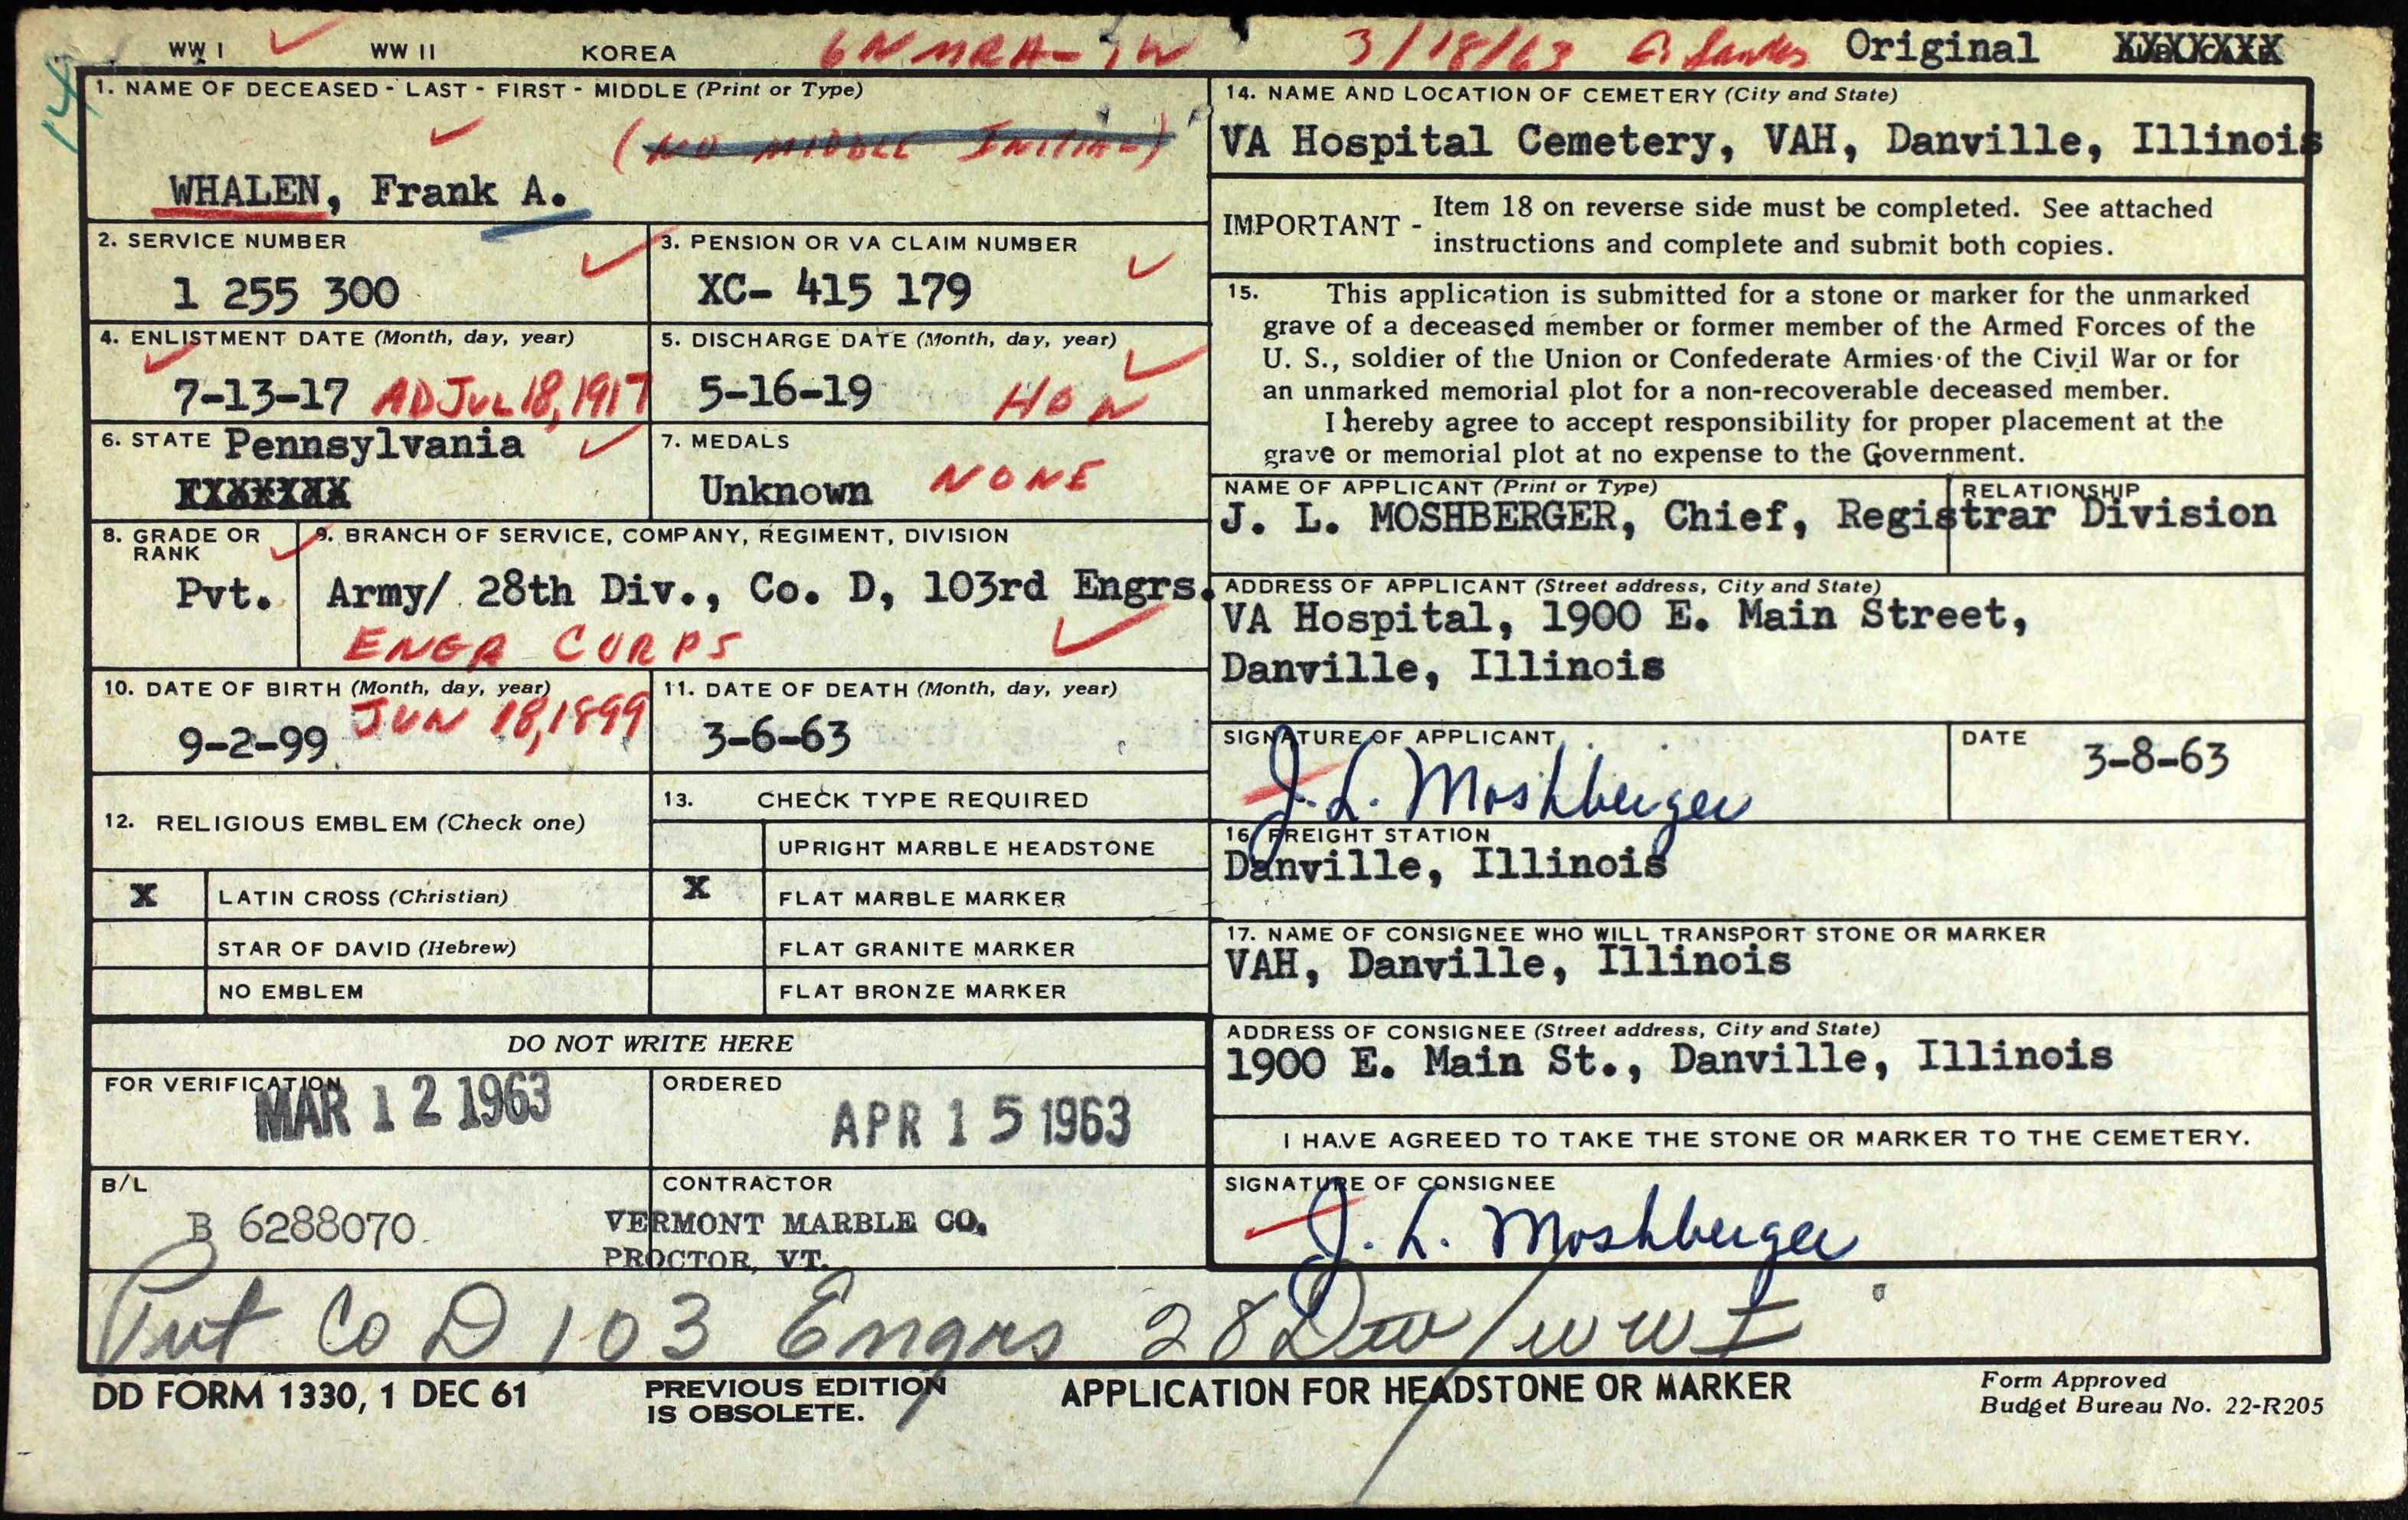 14
WW I ✓ WW II KOREA 3/18/63 Original
1. NAME OF DECEASED - LAST - FIRST - MIDDLE (Print or Type)
(NO MIDDLE INITIAL)
WHALEN, Frank A.
2. SERVICE NUMBER
1 255 300
3. PENSION OR VA CLAIM NUMBER
XC- 415 179
4. ENLISTMENT DATE (Month, day, year)
7-13-17 AD JUL 18, 1917
5. DISCHARGE DATE (Month, day, year)
5-16-19 HON
6. STATE Pennsylvania
7. MEDALS
Unknown NONE
8. GRADE OR
RANK
Pvt.
9. BRANCH OF SERVICE, COMPANY, REGIMENT, DIVISION
Army/ 28th Div., Co. D, 103rd Engrs.
ENGR CORPS
10. DATE OF BIRTH (Month, day, year)
9-2-99 JUN 18, 1899
11. DATE OF DEATH (Month, day, year)
3-6-63
12. RELIGIOUS EMBLEM (Check one)
X LATIN CROSS (Christian)
STAR OF DAVID (Hebrew)
NO EMBLEM
13. CHECK TYPE REQUIRED
UPRIGHT MARBLE HEADSTONE
X FLAT MARBLE MARKER
FLAT GRANITE MARKER
FLAT BRONZE MARKER
DO NOT WRITE HERE
FOR VERIFICATION
MAR 12 1963
ORDERED
APR 15 1963
B/L
B 6288070
CONTRACTOR
VERMONT MARBLE CO.
PROCTOR, VT.
14. NAME AND LOCATION OF CEMETERY (City and State)
VA Hospital Cemetery, VAH, Danville, Illinois
IMPORTANT - Item 18 on reverse side must be completed. See attached
instructions and complete and submit both copies.
15. This application is submitted for a stone or marker for the unmarked
grave of a deceased member or former member of the Armed Forces of the
U. S., soldier of the Union or Confederate Armies of the Civil War or for
an unmarked memorial plot for a non-recoverable deceased member.
I hereby agree to accept responsibility for proper placement at the
grave or memorial plot at no expense to the Government.
NAME OF APPLICANT (Print or Type) RELATIONSHIP
J. L. MOSHBERGER, Chief, Registrar Division
ADDRESS OF APPLICANT (Street address, City and State)
VA Hospital, 1900 E. Main Street,
Danville, Illinois
SIGNATURE OF APPLICANT
J. L. Moshberger
DATE
3-8-63
16. FREIGHT STATION
Danville, Illinois
17. NAME OF CONSIGNEE WHO WILL TRANSPORT STONE OR MARKER
VAH, Danville, Illinois
ADDRESS OF CONSIGNEE (Street address, City and State)
1900 E. Main St., Danville, Illinois
I HAVE AGREED TO TAKE THE STONE OR MARKER TO THE CEMETERY.
SIGNATURE OF CONSIGNEE
J. L. Moshberger
Pvt Co D 103 Engrs 28 Div/WWI
DD FORM 1330, 1 DEC 61
PREVIOUS EDITION
IS OBSOLETE.
APPLICATION FOR HEADSTONE OR MARKER
Form Approved
Budget Bureau No. 22-R205